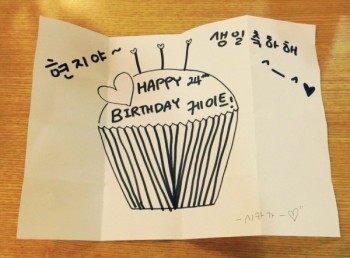 현지야~
생일 축하해
^ㅡ^♥
HAPPY 24th
BIRTHDAY 케이트!